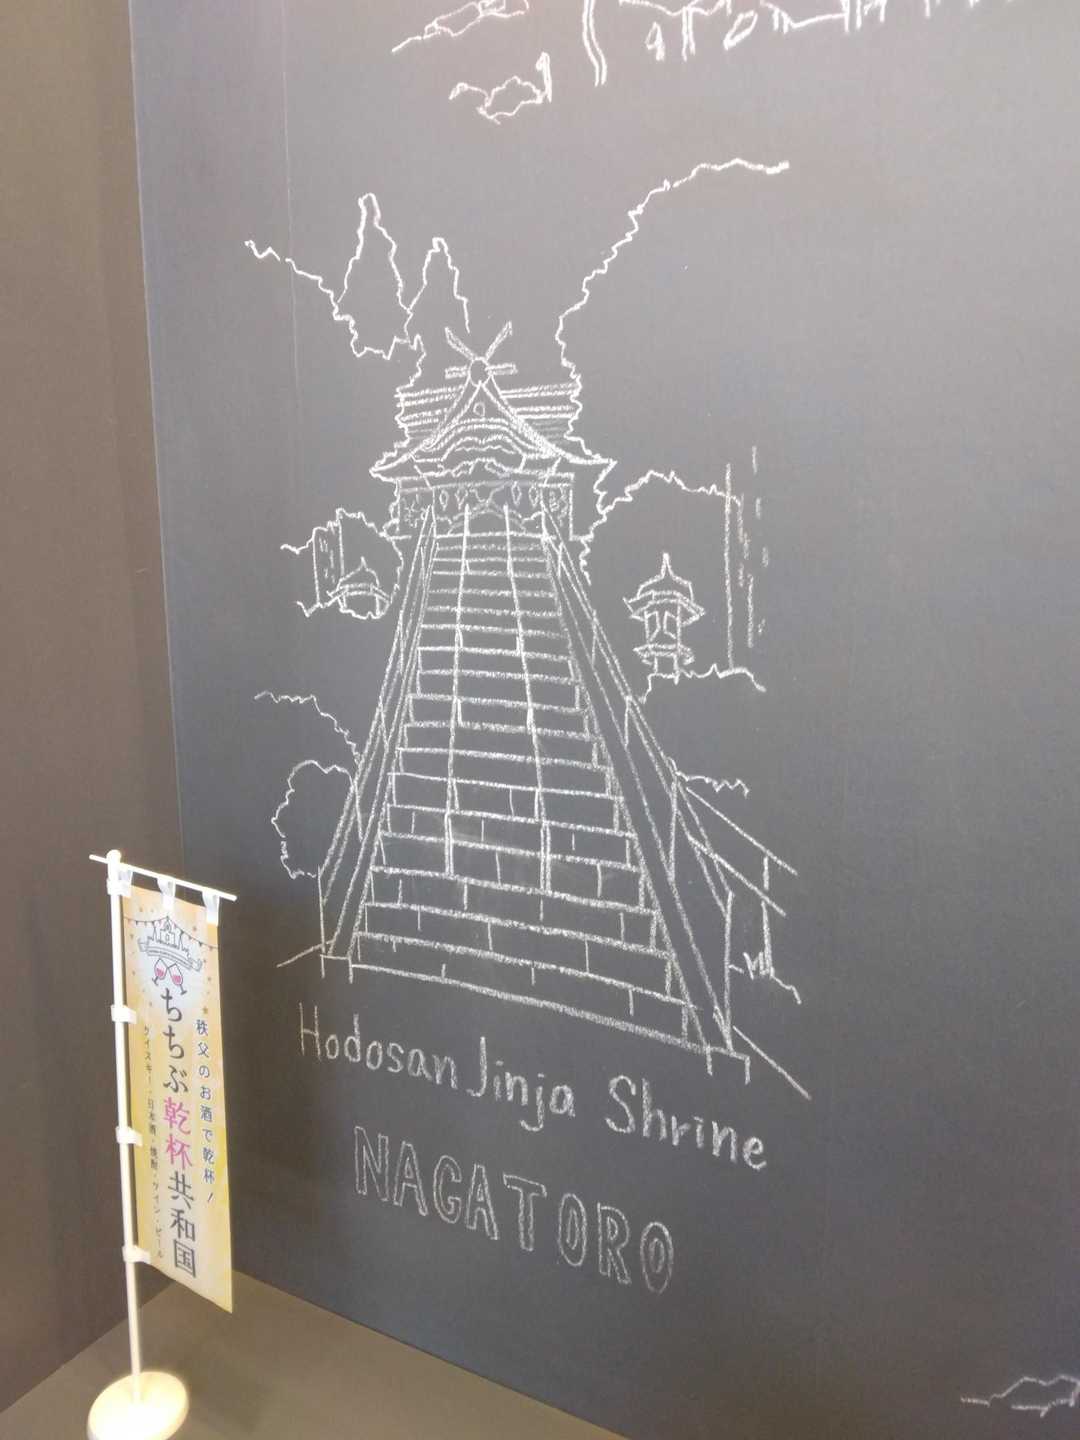 Hodosan Jinja Shrine
NAGATORO
秩父のお酒で乾杯!
ちちぶ乾杯共和国
ウイスキー・日本酒・焼酎・ワイン・ビール